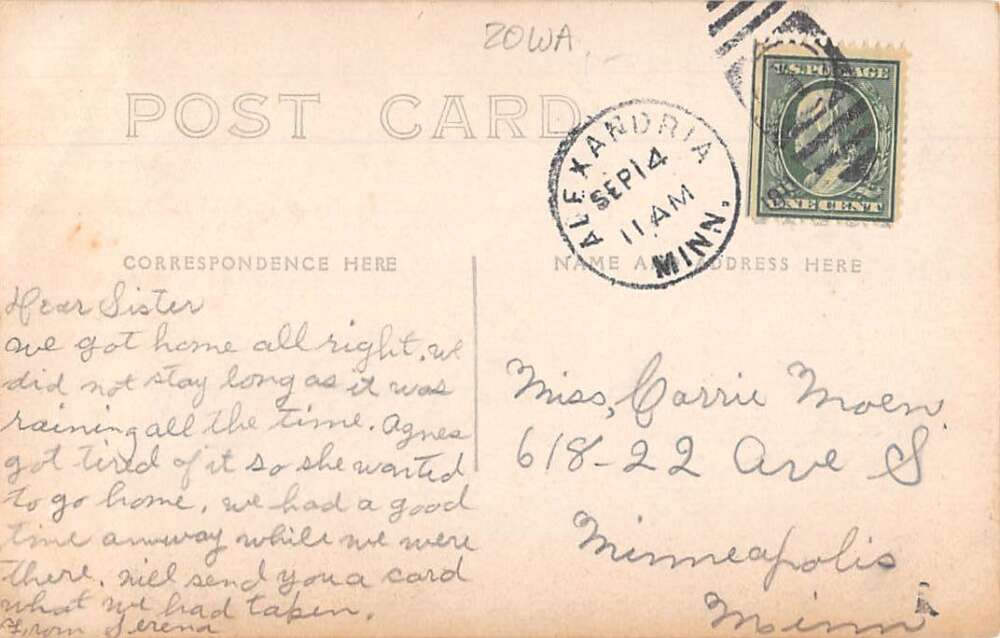 IOWA
POST CARD
U.S. POSTAGE
ONE CENT
ALEXANDRIA
SEP 14
11 AM
MINN.
CORRESPONDENCE HERE
NAME AND ADDRESS HERE
Dear Sister
we got home all right. we
did not stay long as it was
raining all the time. Agnes
got tired of it so she wanted
to go home. we had a good
time anuway while we were
there. will send you a card
what we had taken.
From Serena
Miss, Carrie Moen
618-22 Ave S
Minneapolis
Minn